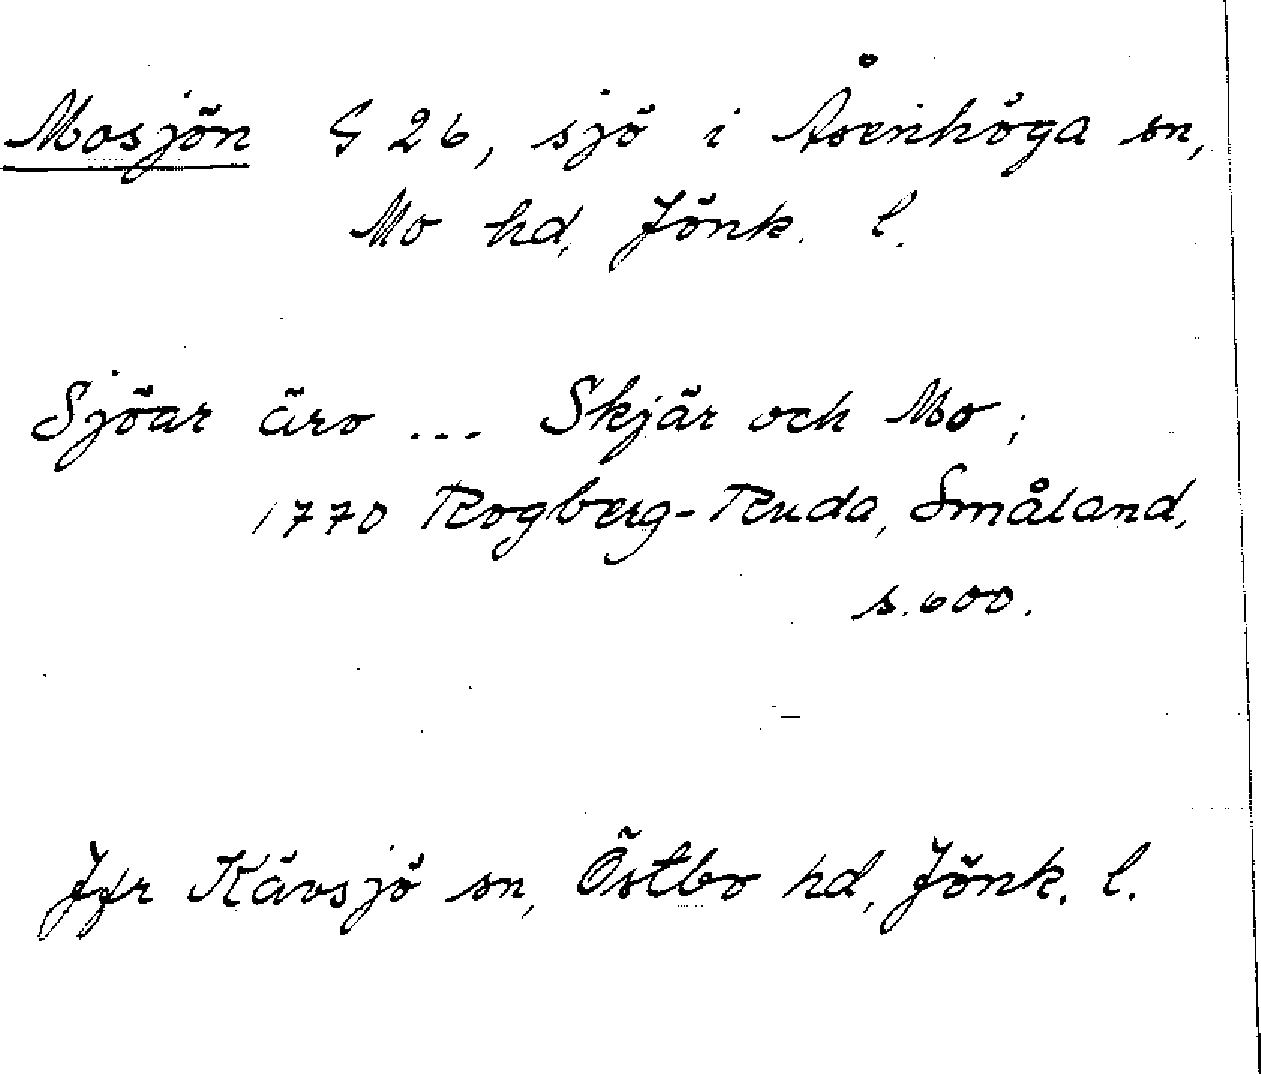 Mosjön G 26, sjö i Åsenhöga sn,
Mo hd, Jönk. l.
Sjöar äro ... Skjär och Mo;
1770 Rogberg-Ruda, Småland,
s. 600.
Jfr Kävsjö sn, Östbo hd, Jönk. l.